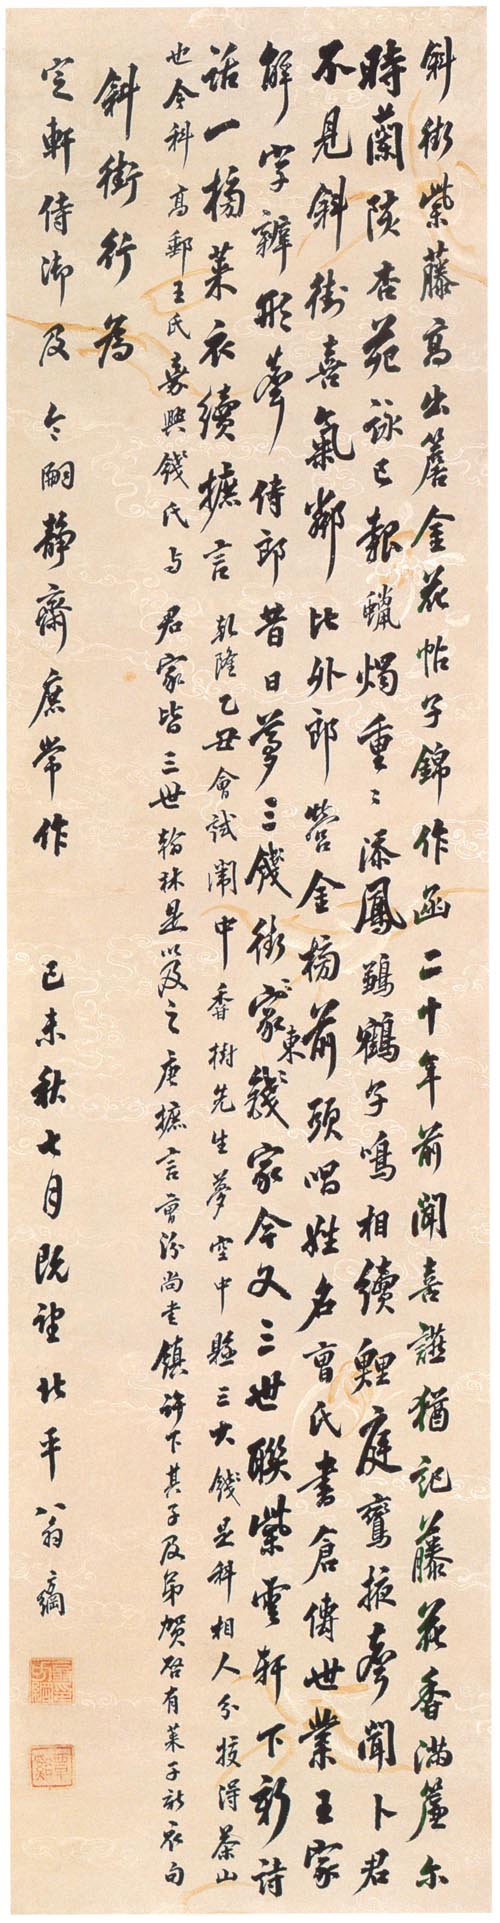 斜街紫藤高出簷金花帖子錦作函二十年前聞喜讌猶記藤花香滿簾尔
時蘭陔杏苑詠已報蠟燭重〻添鳳鷁鶴子鳴相續鯉庭鸞掖齊聞卜君
不見斜街喜氣鄰比外郎營金榜前頭唱姓名曹氏書倉傳世業王家
解字辨形聲侍郎昔日夢三錢街東錢家今又三世聯紫雲軒下新詩
話一榜萊衣續摭言乾隆乙丑會試闈中香樹先生夢空中縣三大錢是科相人分校得茶山
也今科高郵王氏嘉興錢氏与君家皆三世翰林是以及之唐摭言曾汾尚書鎮許下其子及弟賀啓有萊子新衣句
斜街行為
定軒侍御及令嗣靜齋庶常作
己未秋七月既望北平翁方綱